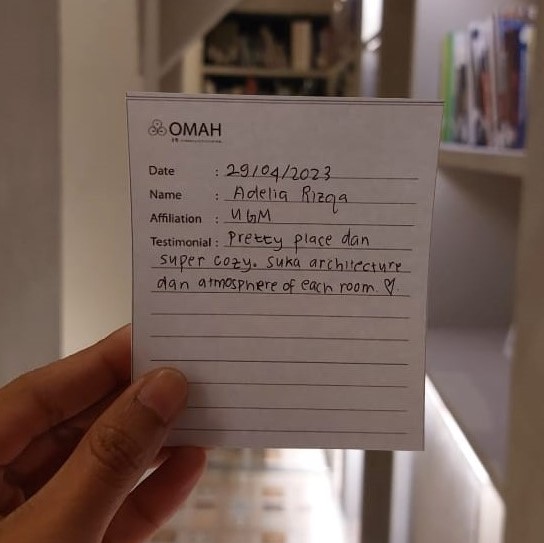 OMAH
Date : 29/04/2023
Name : Adelia Rizqa
Affiliation : UGM
Testimonial : Pretty place dan
super cozy. suka architecture
dan atmosphere of each room. ♡.